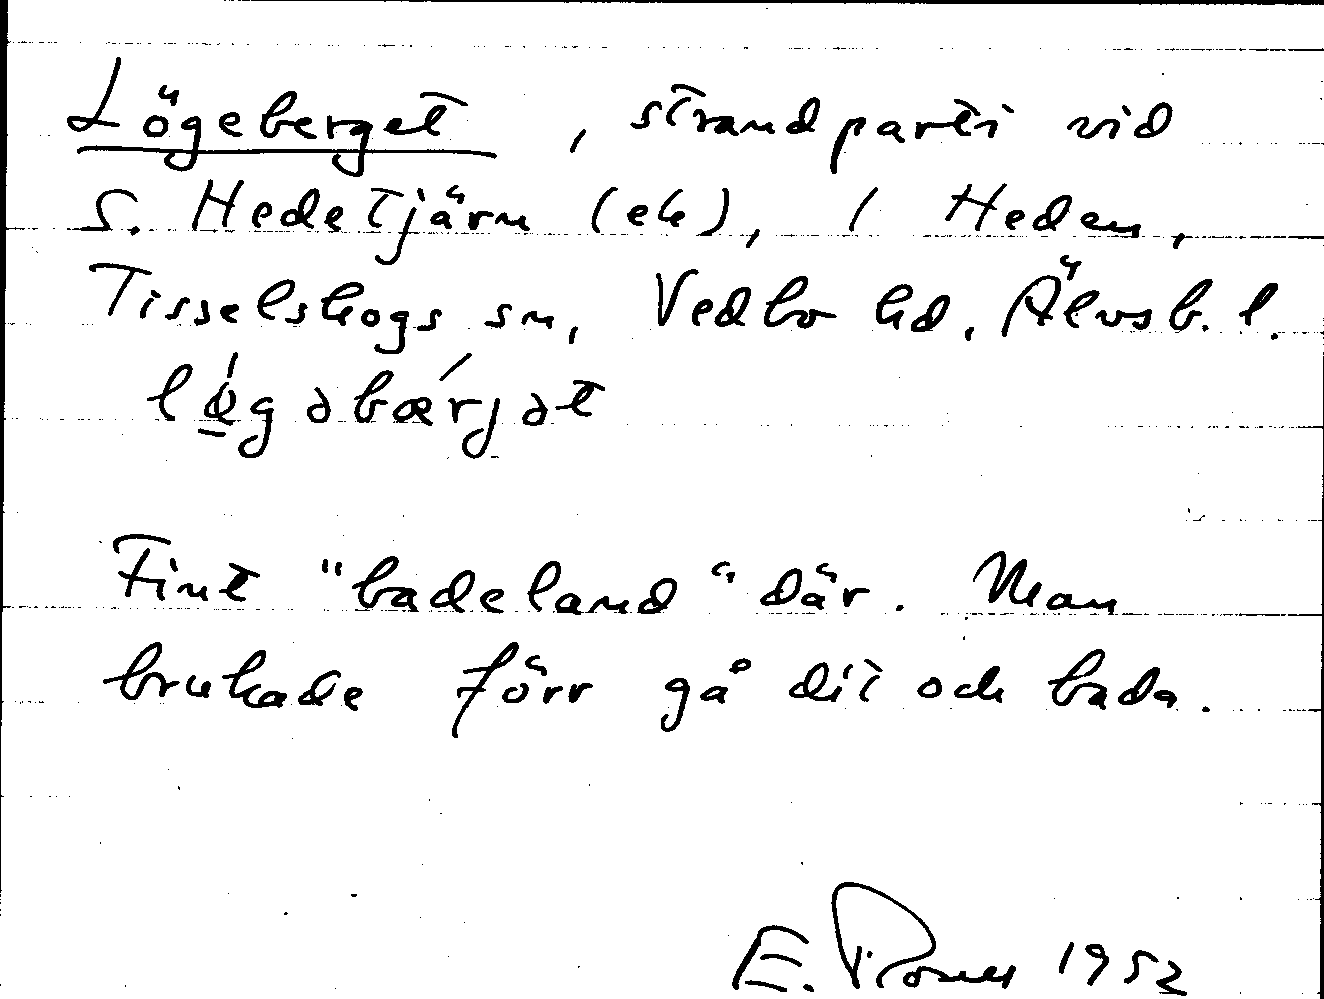 Lögeberget, strandparti vid
S. Hedetjärn (ek), 1 Heden,
Tisselskogs sn, Vedbo hd. Älvsb. l.
lǿ̱gəbæ´rjət
Fint "badeland" där. Man
brukade förr gå dit och bada.
E. 1952